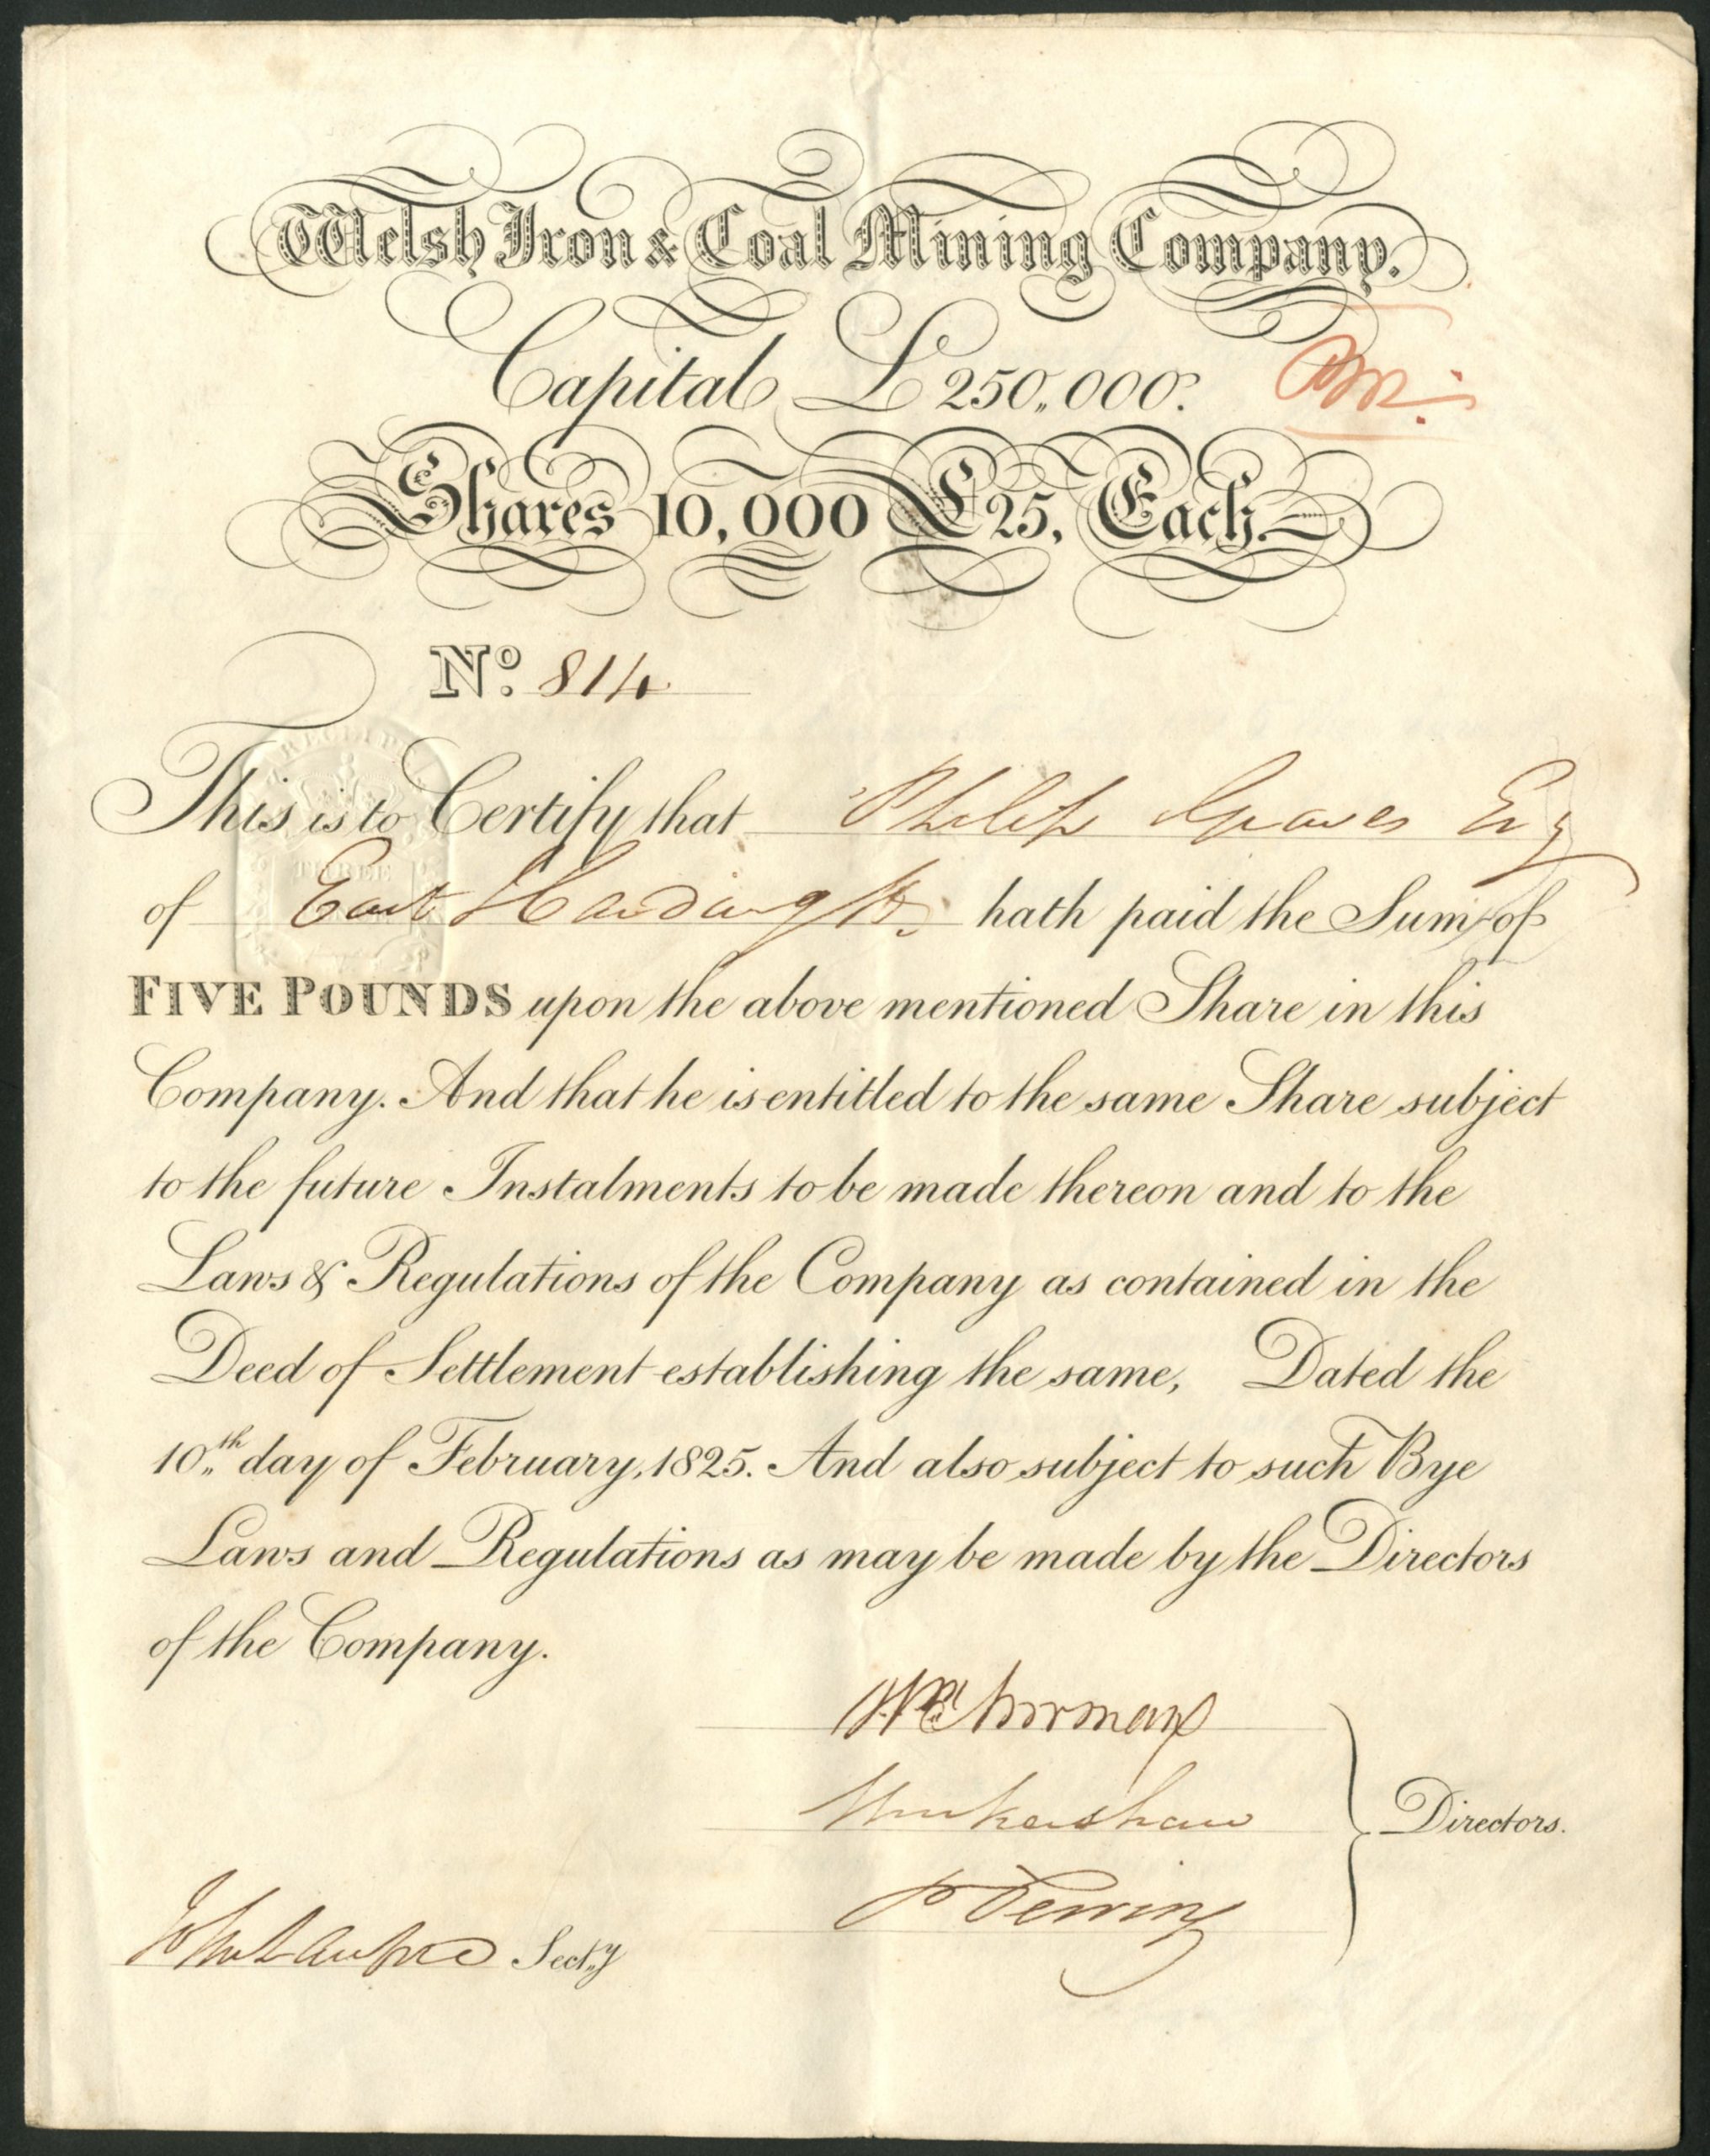 Welsh Iron & Coal Mining Company.
Capital £ 250,,000.
Shares 10,000 £25, Each.
No. 814
RECEIPT
This is to Certify that Philip Graves Esq
THREE
of East Harding St. hath paid the Sum of
FIVE POUNDS upon the above mentioned Share in this
Company. And that he is entitled to the same Share subject
to the future Instalments to be made thereon and to the
Laws & Regulations of the Company as contained in the
Deed of Settlement establishing the same, Dated the
10,,th day of February, 1825. And also subject to such Bye
Laws and Regulations as may be made by the Directors
of the Company.
Directors.
Secty